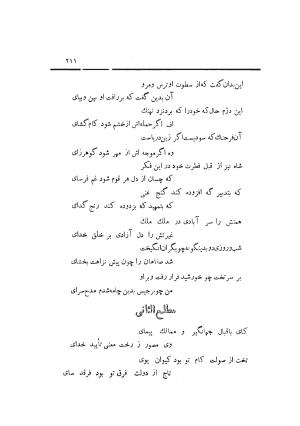 ۲۱۱
این بدان گفت که از سطوت او ترس و مرو
آن بدین گفت که بر رأفت او بین و بپای
این دژم حال که خود را که بردنزد نهنگ
اف اگر حمله‌اش از خشم شود کام گشای
آن فرحناک که سودیست اگر زین دریاست
وه اگر موجه اش از مهر شود گوهرزای
شاه نیز از قبل فطرت خود در این فکر
که چسان از دل هر قوم شود غم فرسای
که بتدبیر گه افزوده کند گنج غنی
که بتمهید که بزدوده کند رنج گدای
همتش را سر آبادی در ملک ملک
غیرتش را دل آزادی بر خلق بخدای
شب و روزی دو بدینگونه چو بگران انگیخت
شد صفاهان را چون پیش نزاهت بخشای
بر سر تخت چو خورشید فراز رفت و بر او
من چو برجیس بدین چامه شدم مدحسرای
مطلع الثانی
کای باقبال جهانگیر و ممالک پیمای
وی مصور ز رخت معنی تأیید خدای
تخت از صولت کام تو بود کیوان پوی
تاج از دولت فرق تو بود فرقد سای